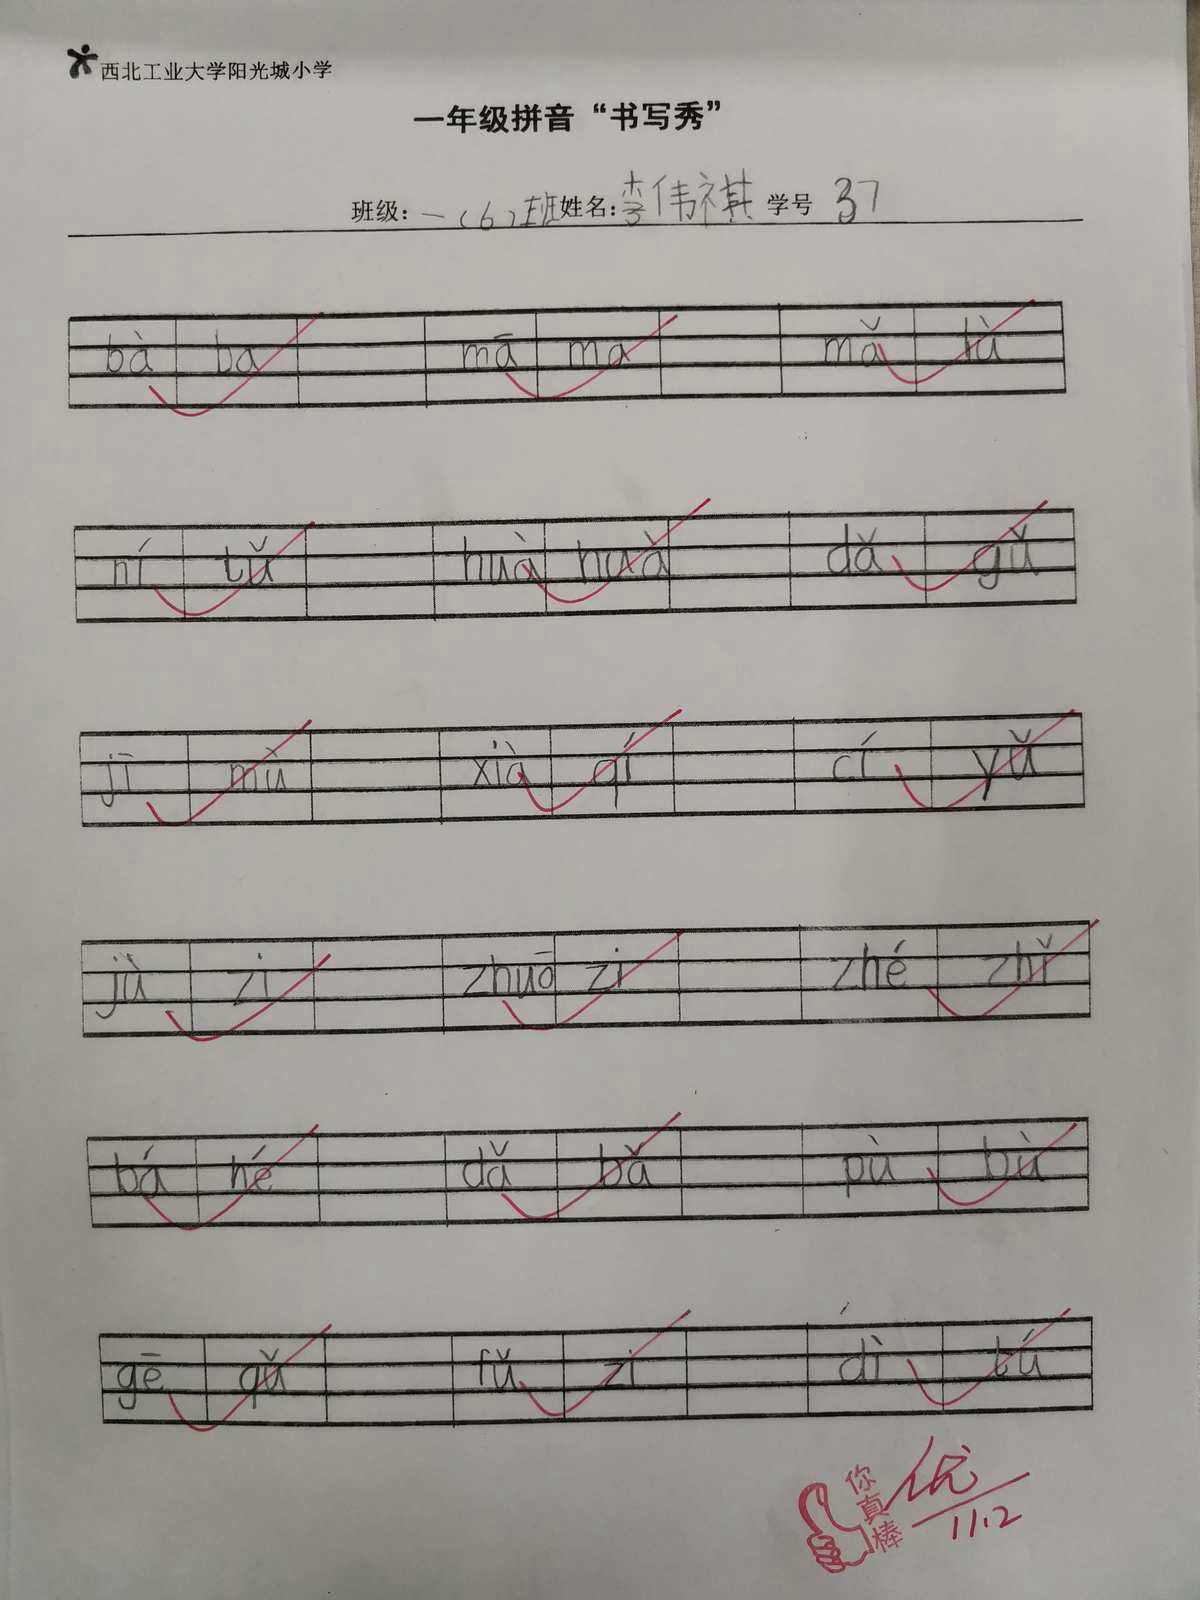 西北工业大学阳光城小学
一年级拼音“书写秀”
班级：一（6）班 姓名：李伟祺 学号 37
bà ba mā ma mǎ lù
ní tǔ huà huà dǎ gǔ
jī mù xià qí cí yǔ
jù zi zhuō zi zhé zhǐ
bá hé dǎ bǎ pù bù
gē qǔ fǔ zi dì tú
你真棒
优
11.2